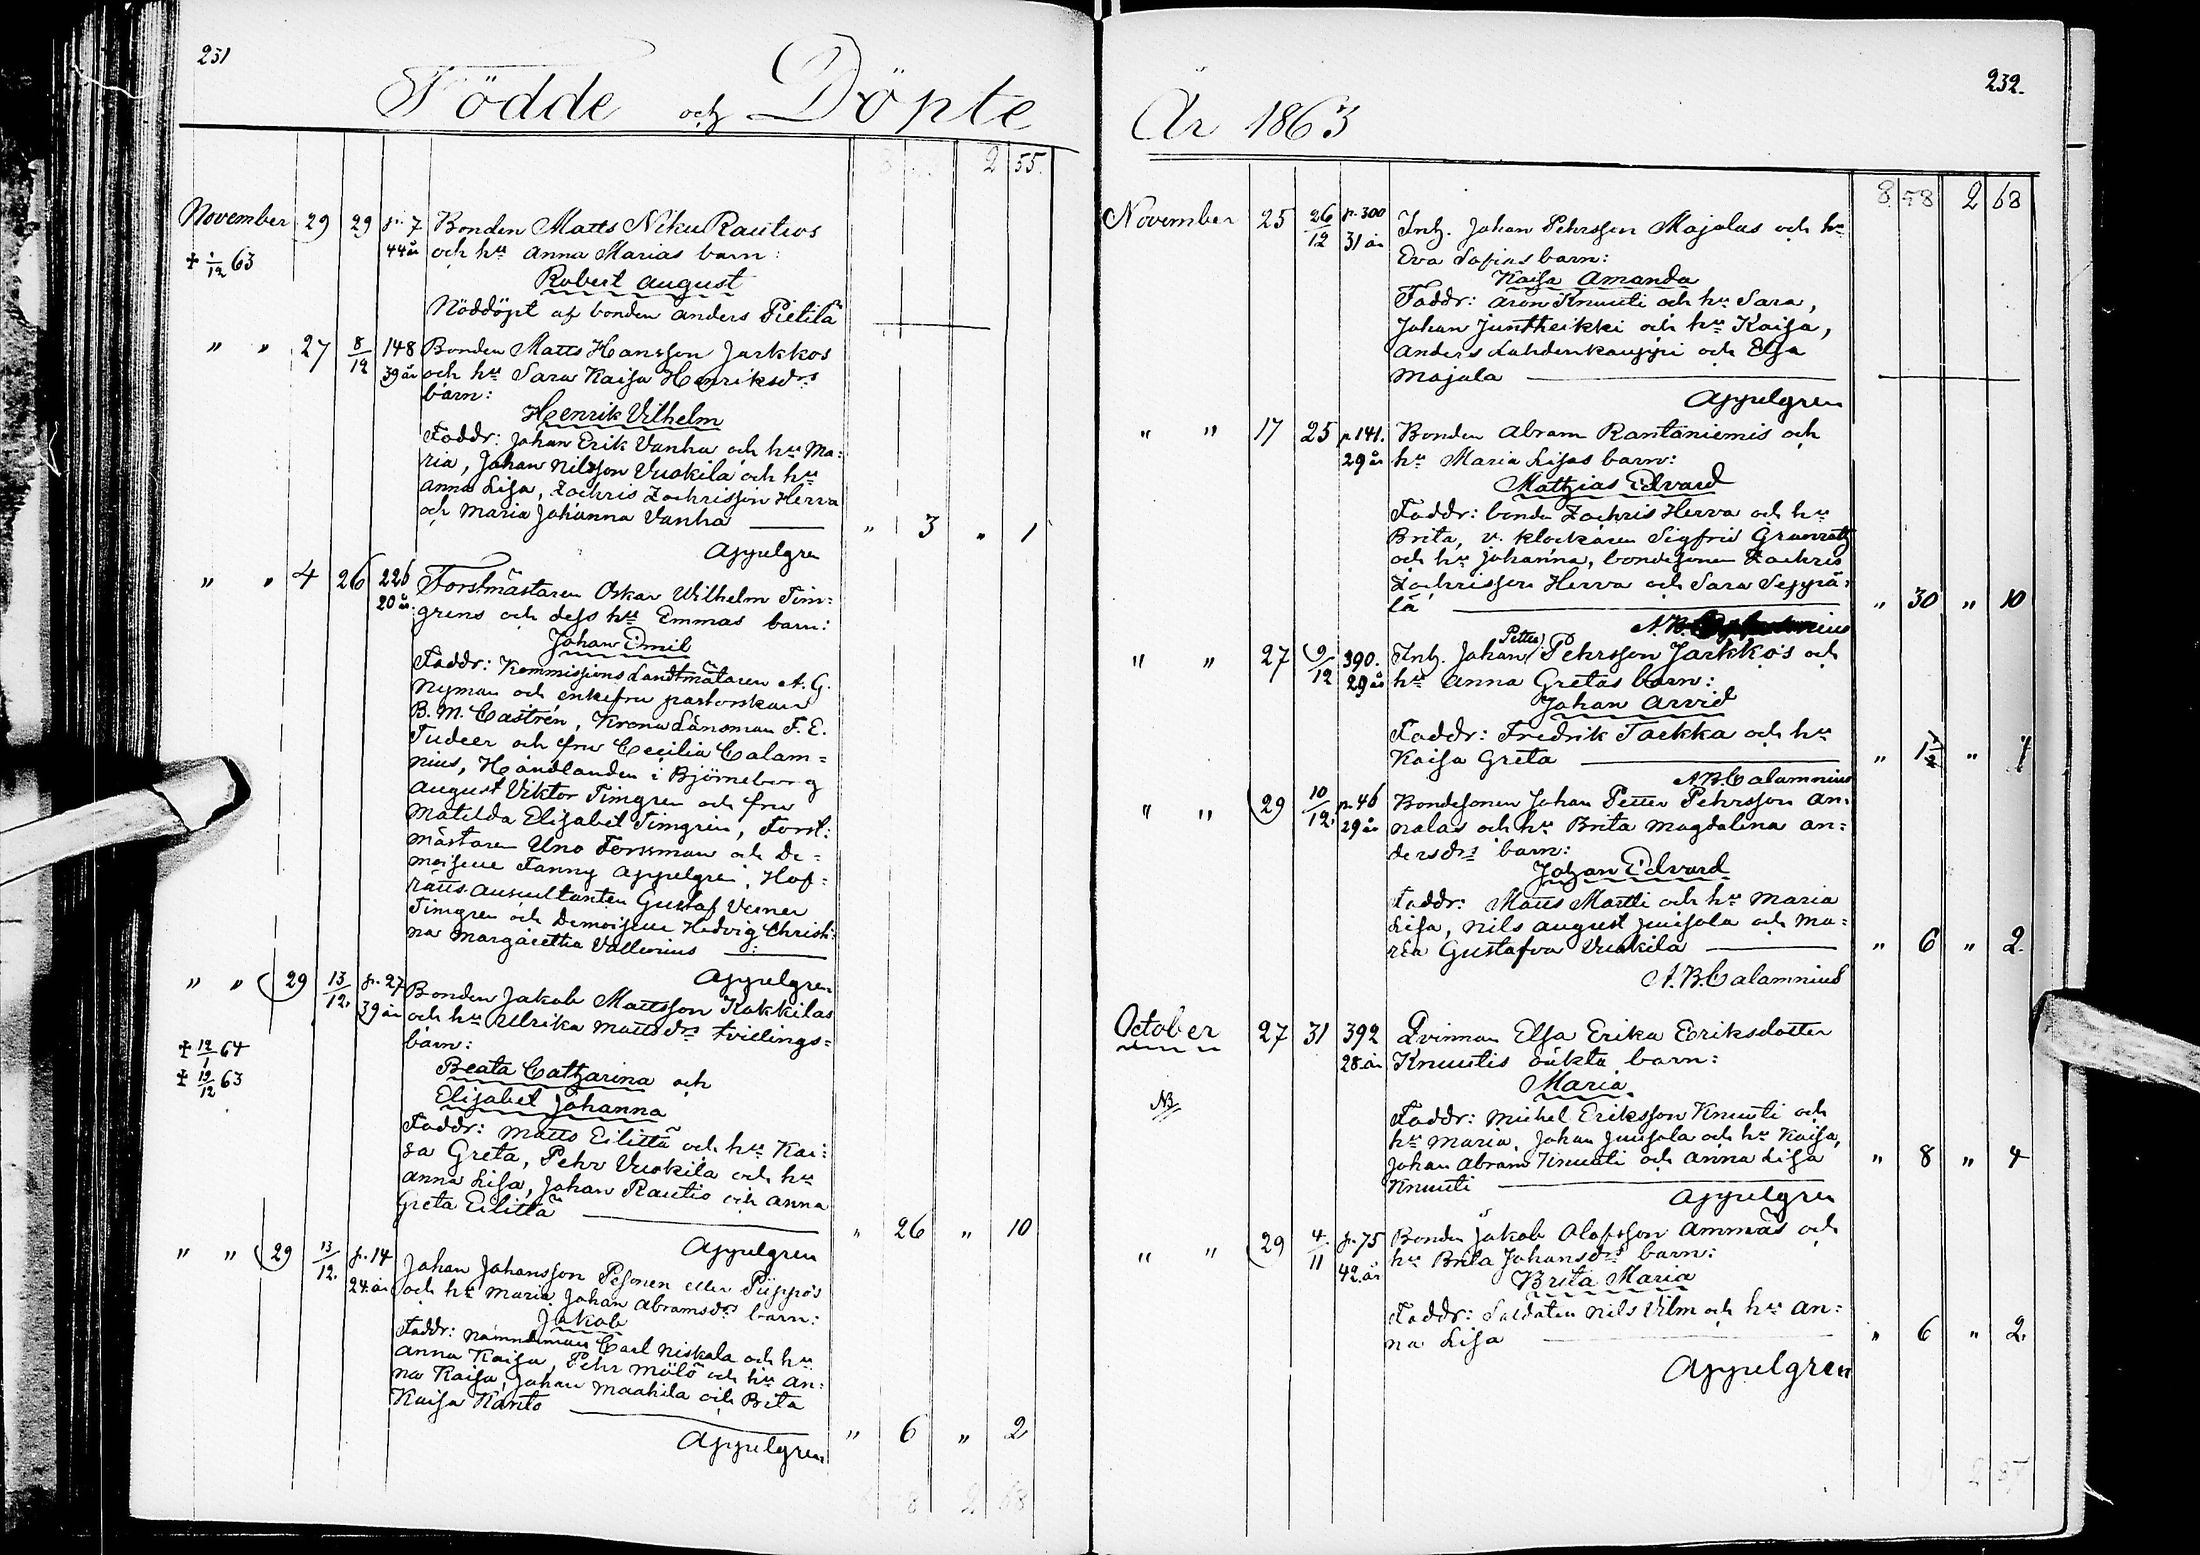 231
Födde och Döpte
2 55.
November 29 29 p. 7 Bonden Matts Niku Rautios
44 år och hu Anna Marias barn:
+ 1/12 63
Robert August
Nöddöpt af bonden Anders Pietilä
" " 27 8/12 148 Bonden Matts Hansson Jarkkos
39 år och hu Sara Kaisa Henriksdrs
barn:
Henrik Vilhelm
Faddr: Johan Erik Vanha och hu Ma:
ria, Johan Nilsson Vuokila och hu
Anna Lisa, Zachris Zachrisson Herva
och Maria Johanna Vanha " 3 " 1
Appelgren
" " 4 26 226 Forstmästaren Oskar Wilhelm Tim:
20 år. grens och dess hu Emmas barn:
Johan Emil
Faddr: Kommissions Landtmätaren A. G.
Nyman och enkefru pastorskan
B. M. Castrén, Krono Länsman F. E.
Tudeer och fru Cecilia Calam=
nius, Handlanden i Björneborg
August Viktor Timgren och fru
Matilda Elisabet Timgrén, Forst:
mästaren Uno Forssman och De=
moiselle Fanny Appelgren, Hof=
rätts Auscultanten Gustaf Verner
Timgren och Demoiselle Hedvig Christi:
na Margaretha Vallenius
Appelgren
" " 29 13/12. p. 27 Bonden Jakob Mattsson Kokkilas
39 år och hu Ulrika Mattsdrs tvillings=
barn:
+ 12/1 64
+ 19/12 63
Beata Catharina och
Elisabet Johanna
Faddr: Matts Eilittä och hu Kai:
sa Greta, Pehr Vuokila och hu
Anna Lisa, Johan Rautio och Anna
Greta Eilittä " 26 " 10
Appelgren
" " 29 13/12. p. 14 Johan Johansson Pesonen eller Piippos
24 år och hu Maria Johan Abramsdrs barn:
Jakob
Faddr: Nämndeman Carl Niskala och hu
Anna Kaisa, Pehr Mölö och hu An:
na Kaisa, Johan Maakila och Brita
Kaisa Kanto " 6 " 2
Appelgren
2 68
232.
År 1863
8 58 2 68
November 25 26/12 p. 300 Inh. Johan Pehrsson Majalas och hu
31 år Eva Sofias barn:
Kaisa Amanda
Faddr: Aron Knuuti och hu Sara,
Johan Juntheikki och hu Kaisa,
Anders Lahdenkauppi och Elsa
Majala
Appelgren
" " 17 25 p 141. Bonden Abram Rantaniemis och
29 år hu Maria Lisas barn:
Mathias Edvard
Faddr: bonden Zachris Herva och hu
Brita, v. klockaren Sigfrid Granroth
och hu Johanna, bondesonen Zachris
Zachrisson Herva och Sara Seppä:
lä " 30 " 10
" " 27 9/12 390. Inh. Johan Petter Pehrsson Jarkkos och
29 år hu Anna Gretas barn:
Johan Arvid
Faddr: Fredrik Tarkka och hu
Kaisa Greta " 1 1/2 "
A. B. Calamnius
" " 29 10/12. p. 46 Bondesonen Johan Petter Pehrsson An=
29 år nalas och hu Brita Magdalena An=
dersdrs barn:
Johan Edvard
Faddr: Matts Martti och hu Maria
Lisa, Nils August Juusola och Ma:
ria Gustafva Vuokila " 6 " 2.
A. B. Calamnius
October 27 31 392 Qvinnan Elsa Erika Eriksdotter
28 år Knuutis oäkta barn:
Maria
NB
Faddr: Michel Eriksson Knuuti och
hu Maria, Johan Juusola och hu Kaisa,
Johan Abram Knuuti och Anna Lisa " 8 " 4
Knuuti
Appelgren
" " 29 4/11 p. 75 Bonden Jakob Olofsson Ammäs och
42 år hu Brita Johansdrs barn:
Brita Maria
Faddr: Soldaten Nils Vilm och hu An:
na Lisa " 6 " 2.
Appelgren